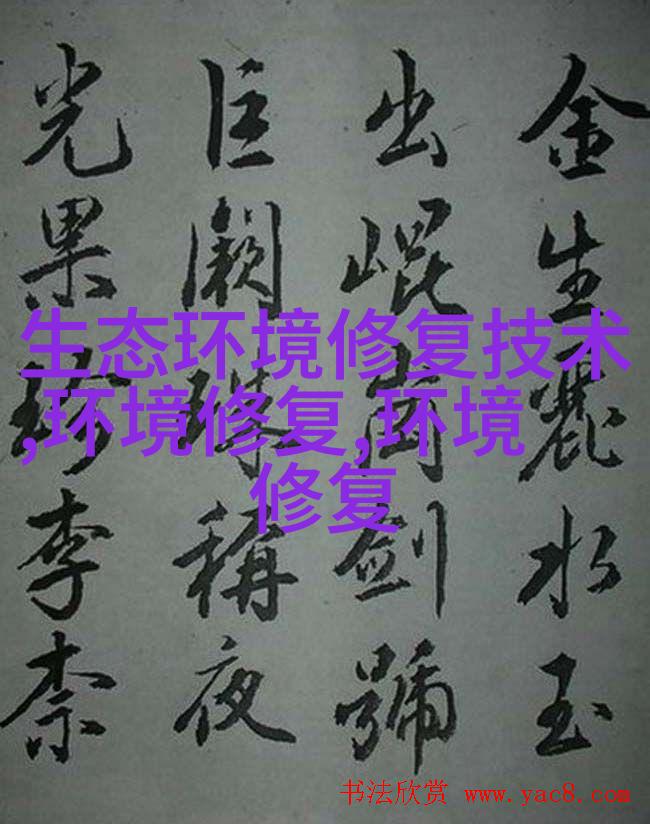 金生麗水玉
出崐崗劍號
巨闕珠稱夜
光果珍李柰
生态环境修复技术
,环境修复,环境
修复
书法欣赏 www.yac8.com